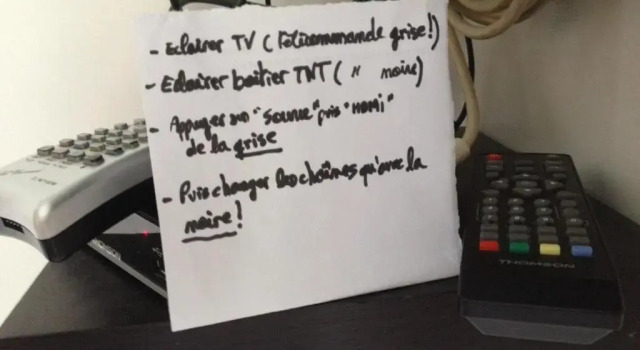 - Eclairer TV (Télécommande grise!)
- Eclairer boîtier TNT ( " noire)
- Appuyer sur "source" puis "HDMI"
de la grise
- Puis changer les chaînes qu'avec la
noire!
THOMSON